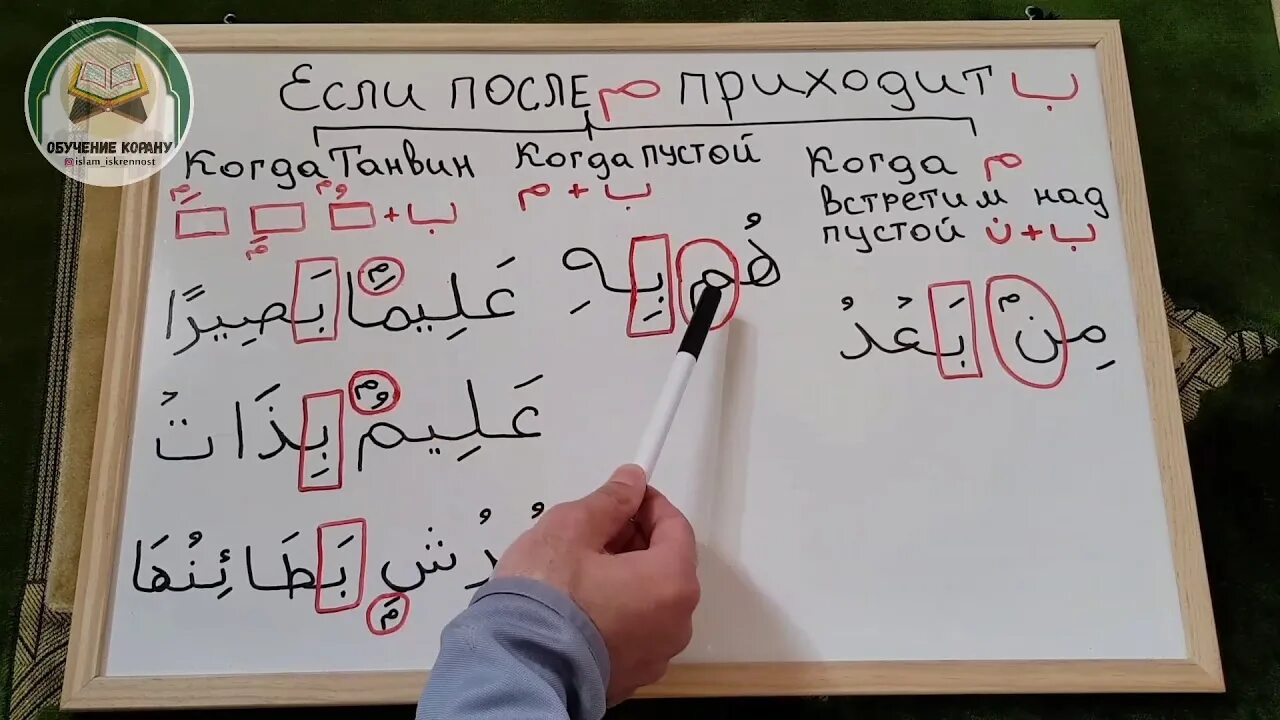 ОБУЧЕНИЕ КОРАНУ
islam_iskrennost
Если после م приходит ب
Когда Танвин
+ ب
عَلِيمًا بَصِيرًا
عَلِيمٌ بِذَاتْ
بَطَائِنُهَا
Когда пустой
م + ب
هُم بِهِ
Когда م
встретим над
пустой ن + ب
مِن بَعْدُ